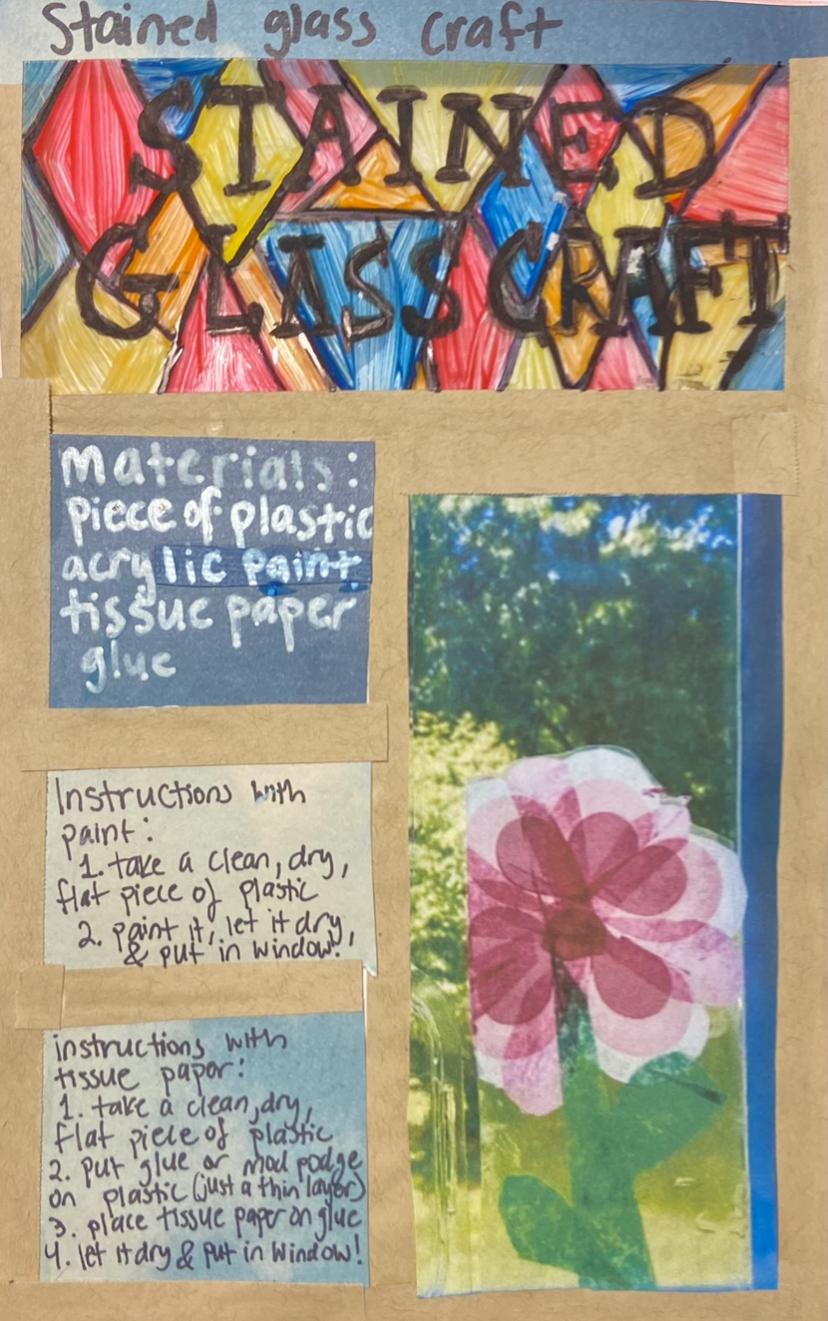 Stained glass craft
STAINED
GLASS CRAFT
Materials:
piece of plastic
acrylic paint
tissue paper
glue
Instructions with
paint:
1. take a clean, dry,
flat piece of plastic
2. paint it, let it dry,
& put in window!
instructions with
tissue paper:
1. take a clean, dry,
flat piece of plastic
2. put glue or mod podge
on plastic (just a thin layer)
3. place tissue paper on glue
4. let it dry & put in window!